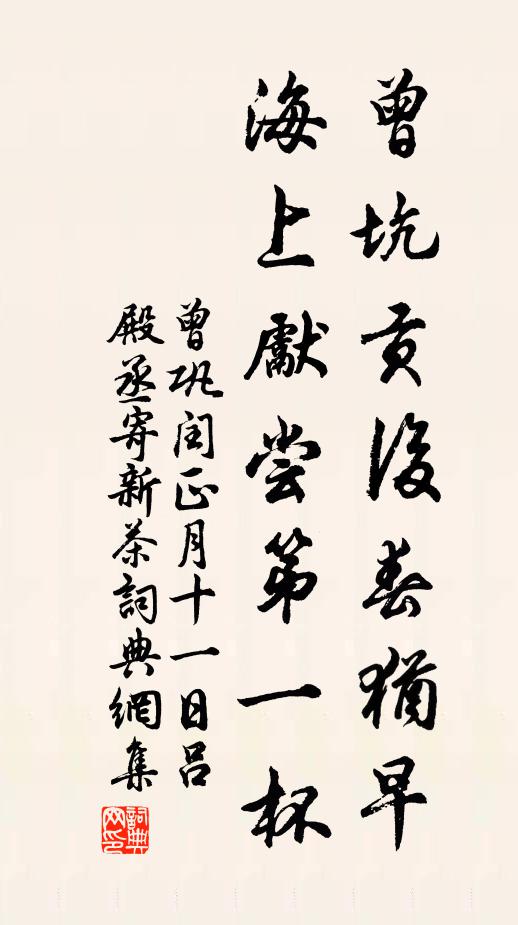 曾坑贡後春猶早
海上獻尝第一杯
曾巩闰正月十一日吕
殿丞寄新茶詞典網集
詞典